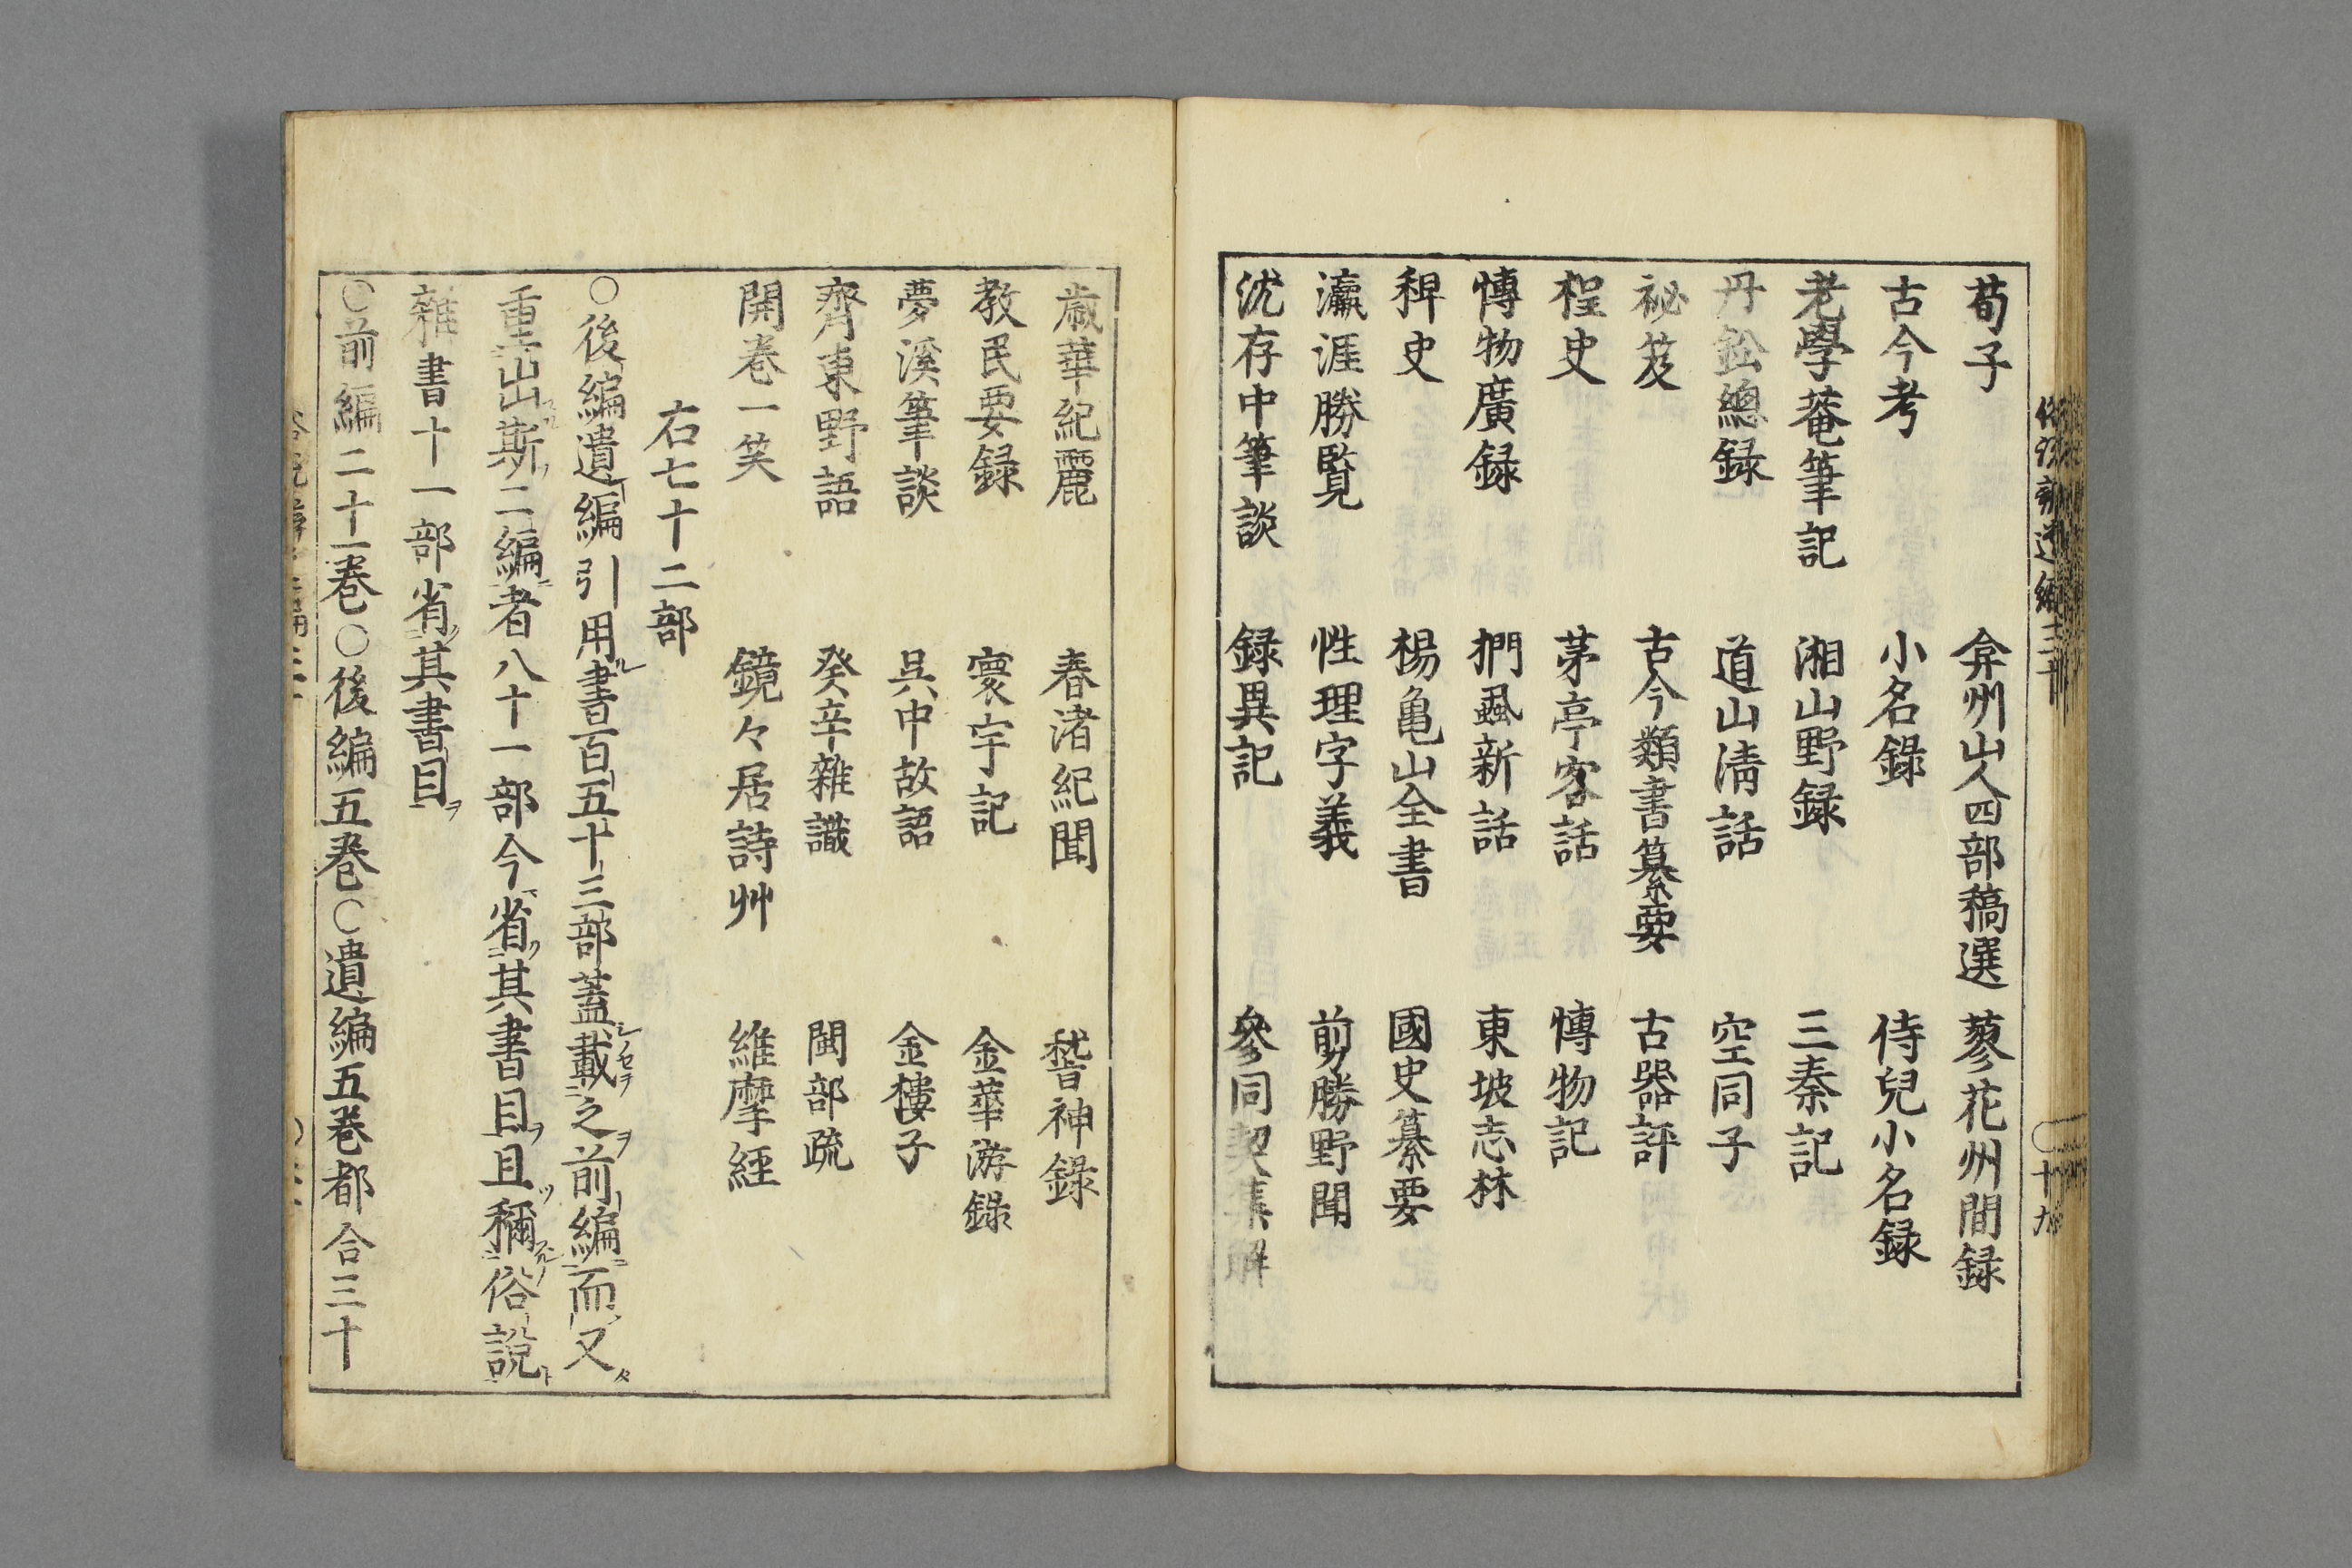 荀子　弇州山人四部稿選　蓼花州間録
古今考　小名錄　侍兒小名録
老學菴筆記　湘山野録　三秦記
丹鉛總録　道山清話　空同子
祕笈　古今類書纂要　古器評
桯史　茅亭客話　博物記
博物廣録　捫虱新話　東坡志林
稗史　楊亀山全書　國史纂要
瀛涯勝覧　性理字義　剪勝野聞
沈存中筆談　録異記　參同契集解
歳華紀麗　春渚紀聞　嵆神錄
教民要録　寰宇記　金華游錄
夢溪筆談　吳中故語　金樓子
齊東野語　癸辛雜識　閩部疏
開巻一笑　鏡々居詩艸　維摩経
右七十二部
○後編遺編引用書百五十三部蓋載之前編而又
重出斯二編者八十一部今省其書目且稱俗説
雜書十一部省其書目
○前編二十一巻○後編五巻○遺編五巻都合三十